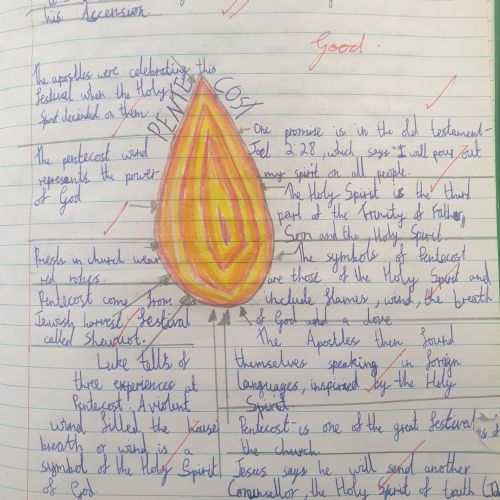 his Ascension
Good.
PENTE COST
The apostles were celebrating this
festival when the Holy
Spirit decended on them.
The pentecost wind
represents the power
of God
Priests in church wear
red robes.
Pentecost come from
Jewish harvest festival
called Shewuot.
Luke tells of
three experiences at
Pentecost. A violent
wind filled the house
breath or wind is a
symbol of the Holy Spirit
of God.
One promise is in the old testament-
Joel 2.28, which says "I will pour out
my spirit on all people.
The Holy Spirit is the third
part of the Trinity of Father,
Son and the Holy Spirit
The symbols of Pentecost
are those of the Holy Spirit and
include flames, wind, the breath
of God and a dove
The Apostles then found
themselves speaking in foreign
languages, inspired by the Holy
Spirit.
Pentecost is one of the great festival
the church
Jesus says he will send another
Counsellor, the Holy Spirit of truth